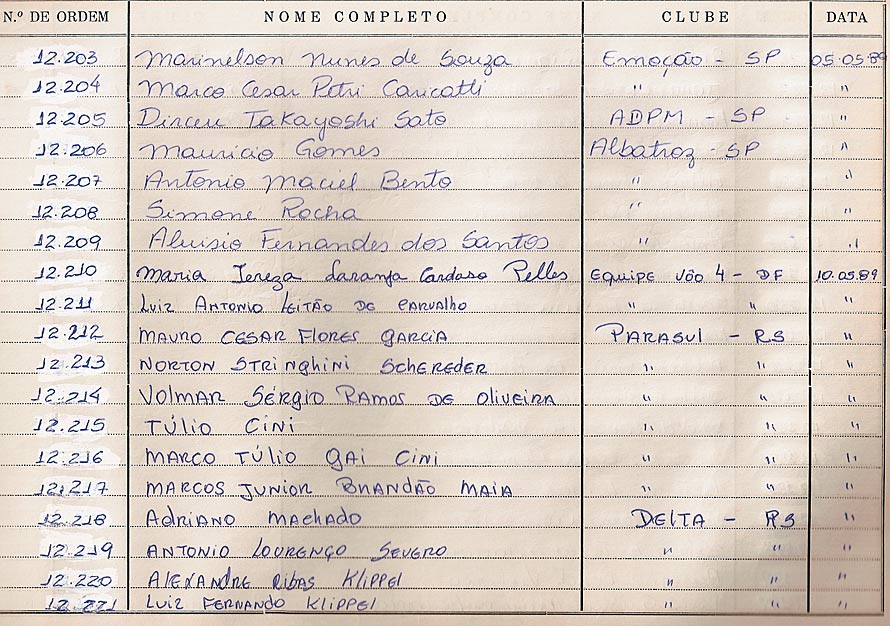 N.º DE ORDEM NOME COMPLETO CLUBE DATA
12.203 Marinelson Nunes de Souza Emoção - SP 05.05.89
12.204 Marco Cesar Petri Caricatti " "
12.205 Dirceu Takayoshi Sato ADPM - SP "
12.206 Mauricio Gomes Albatroz - SP "
12.207 Antonio Maciel Bento " "
12.208 Simone Rocha " "
12.209 Aluisio Fernandes dos Santos " "
12.210 Maria Tereza Laranja Cardoso Pelles EQUIPE VÔO 4 - DF 10.05.89
12.211 LUIZ ANTONIO LEITÃO DE CARVALHO " " "
12.212 MAURO CESAR FLORES GARCIA PARASUL - RS "
12.213 NORTON STRINGHINI SCHEREDER " " "
12.214 VOLMAR SÉRGIO RAMOS DE OLIVEIRA " " "
12.215 TÚLIO CINI " " "
12.216 MARCO TÚLIO GAI CINI " " "
12.217 MARCOS JUNIOR BHANDÃO MAIA " " "
12.218 ADRIANO MACHADO DELTA - RS "
12.219 ANTONIO LOURENÇO SEVERO " " "
12.220 ALEXANDRE RIBAS KLIPPEL " " "
12.221 LUIZ FERNANDO KLIPPEL " " "